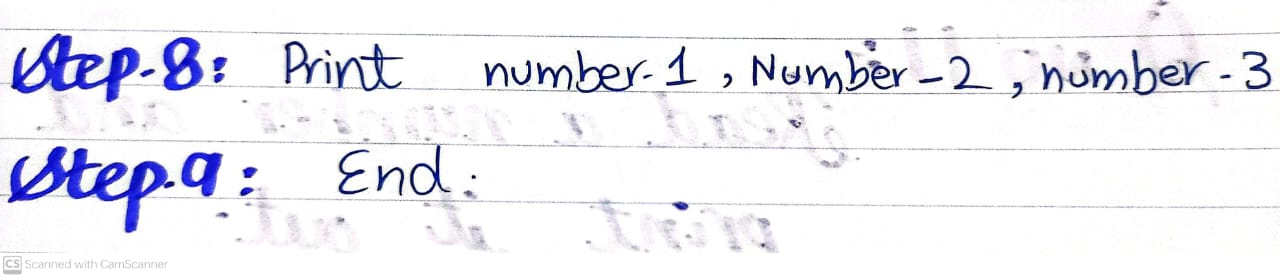 Step-8: Print number-1, Number-2, number-3
Step-9: End.
CS Scanned with CamScanner